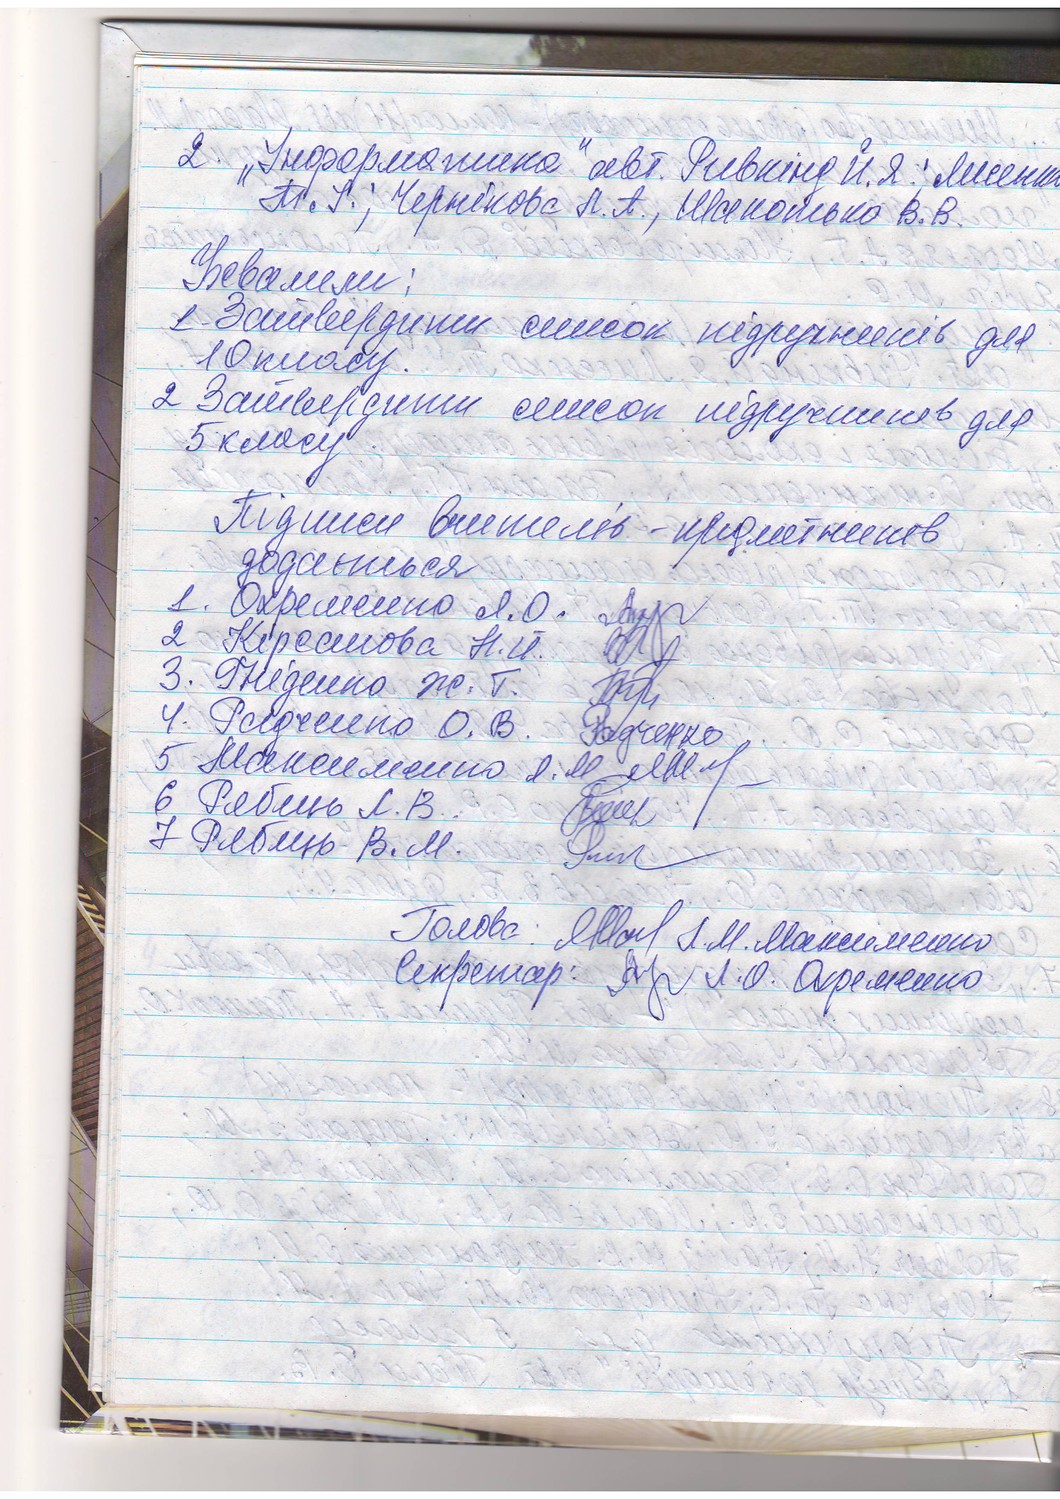 2. „Інформатика" авт. Ривкінд Й.Я.; Лисенко
Т.І.; Чернікова Л.А., Шакотько В.В.
Ухвалили:
1. Затвердити список підручників для
10 класу.
2 Затвердити список підручників для
5 класу.
Підписи вчителів - предметників
додаються
1. Охременко Л.О.
2 Кірсанова Н.П.
3. Гніденко Ж.Г.
4. Радченко О.В. Радченко
5 Максименко Л.М
6 Рябець Л.В.
7 Рябець В.М.
Голова: Л.М. Максименко
Секретар: Л.О. Охременко